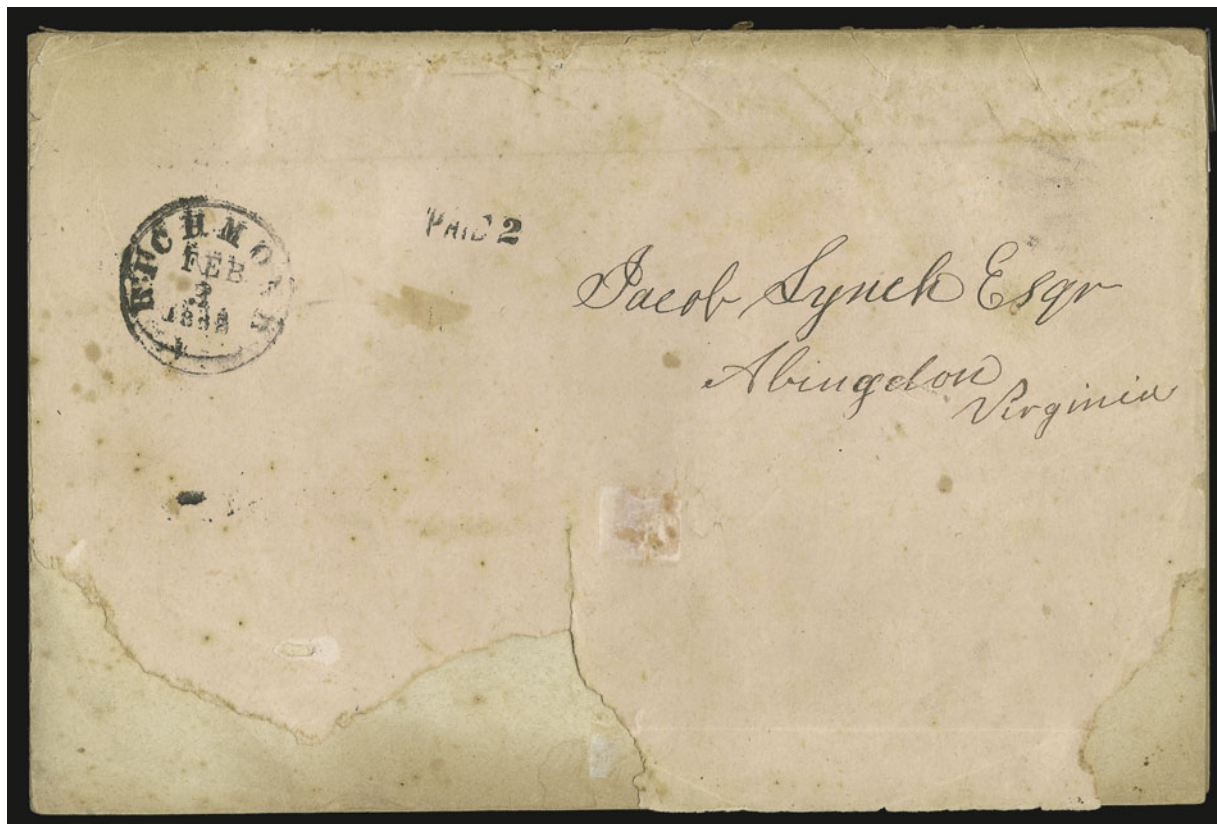 RICHMOND
FEB
3
PAID 2
Jacob Lynch Esqr
Abingdon
Virginia